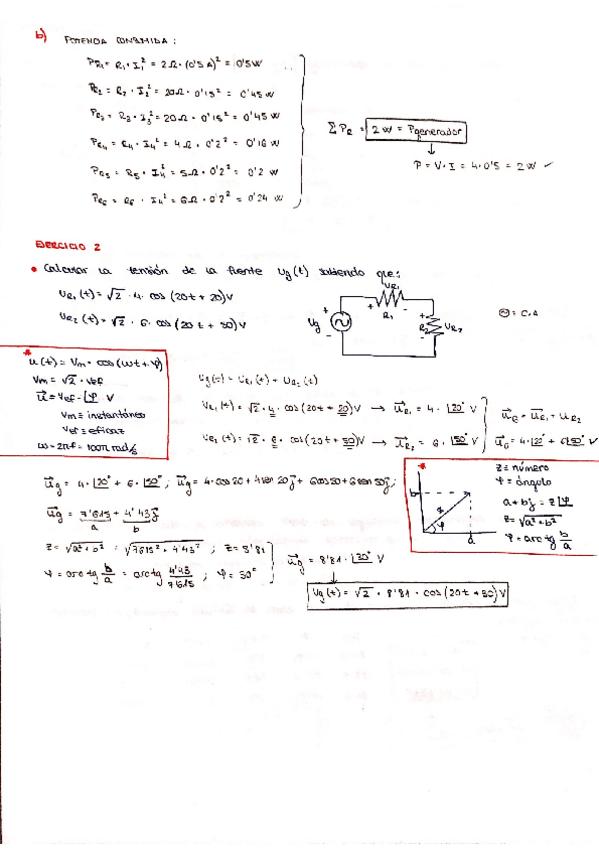 b) POTENCIA CONSUMIDA:
PR1 = R1 · I1² = 2Ω · (0'5A)² = 0'5W
PR2 = R2 · I2² = 20Ω · 0'15² = 0'45W
PR3 = R3 · I3² = 20Ω · 0'15² = 0'45W
PR4 = R4 · I4² = 4Ω · 0'2² = 0'16 W
PR5 = R5 · I4² = 5Ω · 0'2² = 0'2 W
PR6 = R6 · I4² = 6Ω · 0'2² = 0'24 W
ΣPR = 2W = Pgenerador
P = V·I = 4·0'5 = 2W ✓
EJERCICIO 2
• Calcular la tensión de la fuente Ug(t) sabiendo que:
UR1(t) = √2 · 4 · cos(20t + 20)V
UR2(t) = √2 · 6 · cos(20t + 50)V
UR1
+ -
R1
+
Ug
-
+
R2
-
UR2
= C.A
*
u(t) = Vm · cos(ωt + φ)
Vm = √2 · Vef
u⃗ = Vef · |φ V
Vm = instantáneo
Vef = eficaz
ω = 2πf = 100π rad/s
Ug(t) = UR1(t) + UR2(t)
UR1(t) = √2 · 4 · cos(20t + 20)V → u⃗R1 = 4 · |20° V
UR2(t) = √2 · 6 · cos(20t + 50)V → u⃗R2 = 6 · |50° V
u⃗G = u⃗R1 + UR2
u⃗G = 4·|20° + 6|50° V
u⃗g = 4·|20° + 6·|50° ; u⃗g = 4·cos20 + 4sen20j + 6cos50 + 6sen50j ;
u⃗g = 7'615 + 4'43j
a b
Z = √a² + b² = √7615² + 4'43² ; Z = 8'81
φ = arctg b/a = arctg 4'43/7615 ; φ = 30°
u⃗g = 8'81 · |30° V
Ug(t) = √2 · 8'81 · cos(20t + 30)V
*
b
z
φ
a
Z = número
φ = ángulo
a + bj = Z|φ
Z = √a² + b²
φ = arctg b/a